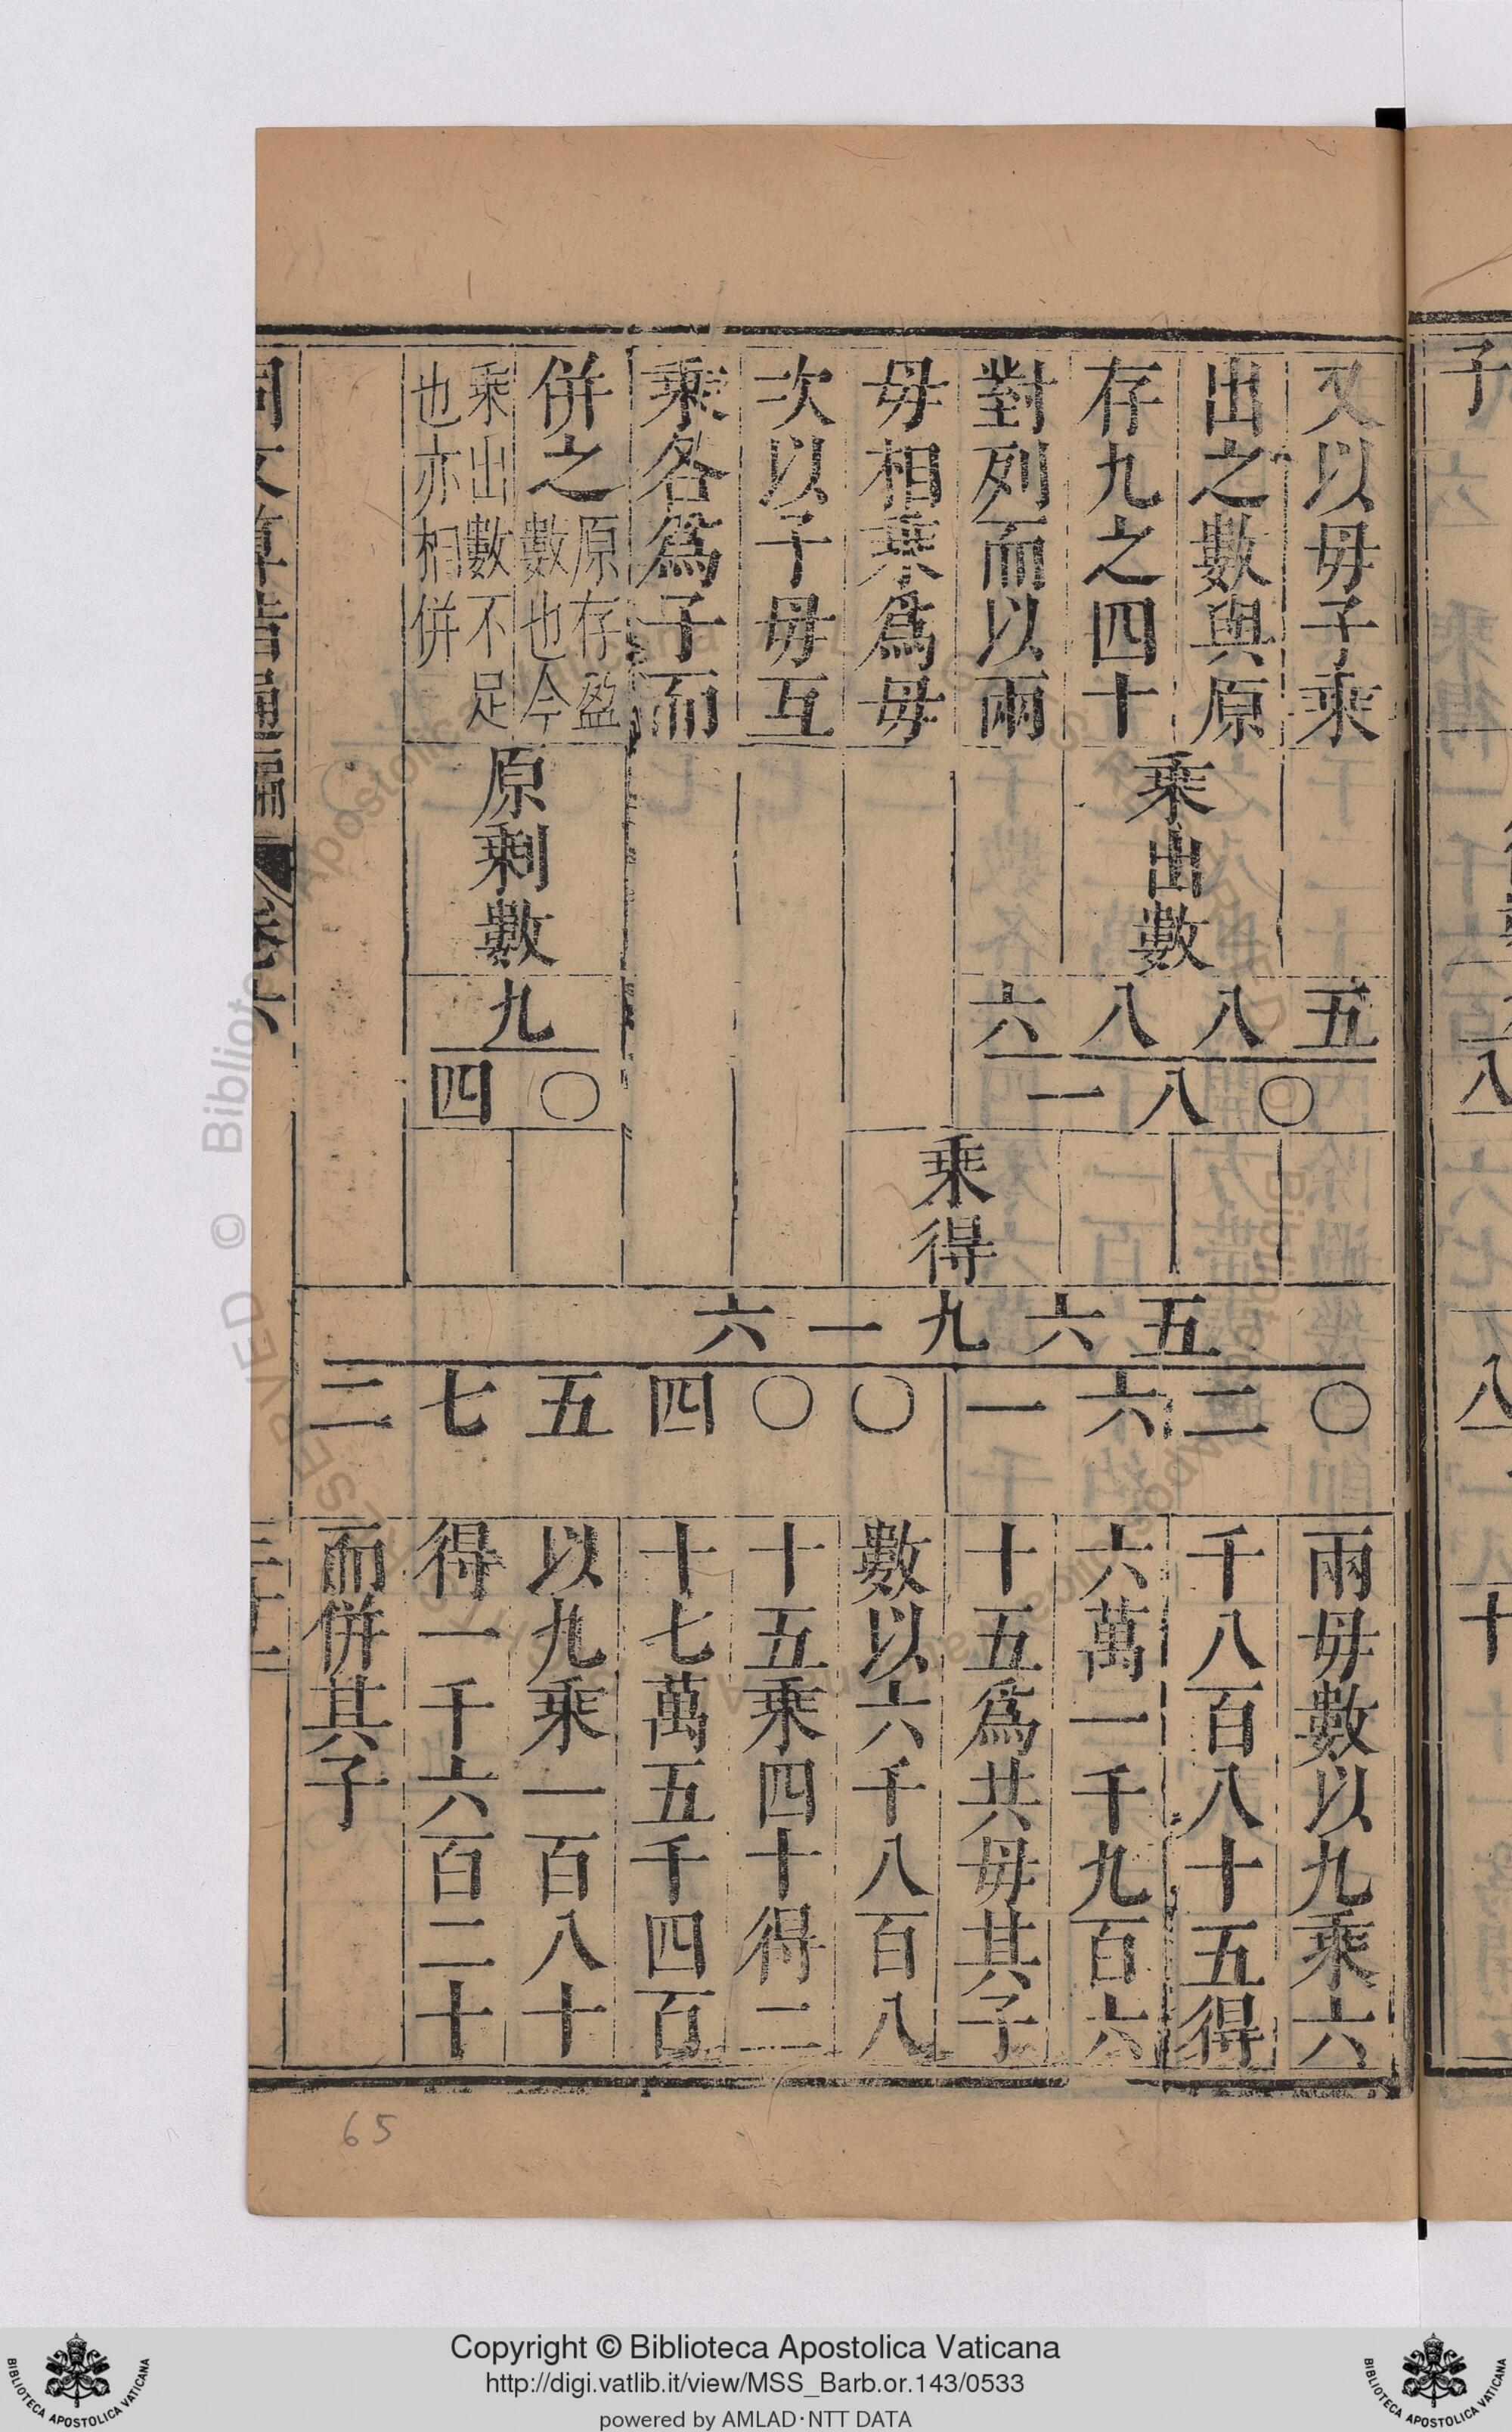 子
又以毋子乘
出之數與原
存九之四十
對列而以兩
毋相乘爲毋
次以子毋互
乘各爲子而
併之原存盈
數也今
乘出數不足
也亦相併
乘出數
六八八五
一八〇
原剩數
九
四〇
乘得
六一九六五
二七五四〇〇
一六二〇
兩毋數以九乘六
千八百八十五得
六萬一千九百六
十五爲共毋其子
數以六千八百八
十五乘四十得二
十七萬五千四百
以九乘一百八十
得一千六百二十
而併其子
同文算指通編
65
Copyright © Biblioteca Apostolica Vaticana
http://digi.vatlib.it/view/MSS_Barb.or.143/0533
powered by AMLAD·NTT DATA
BIBLIOTECA APOSTOLICA VATICANA
BIBLIOTECA APOSTOLICA VATICANA